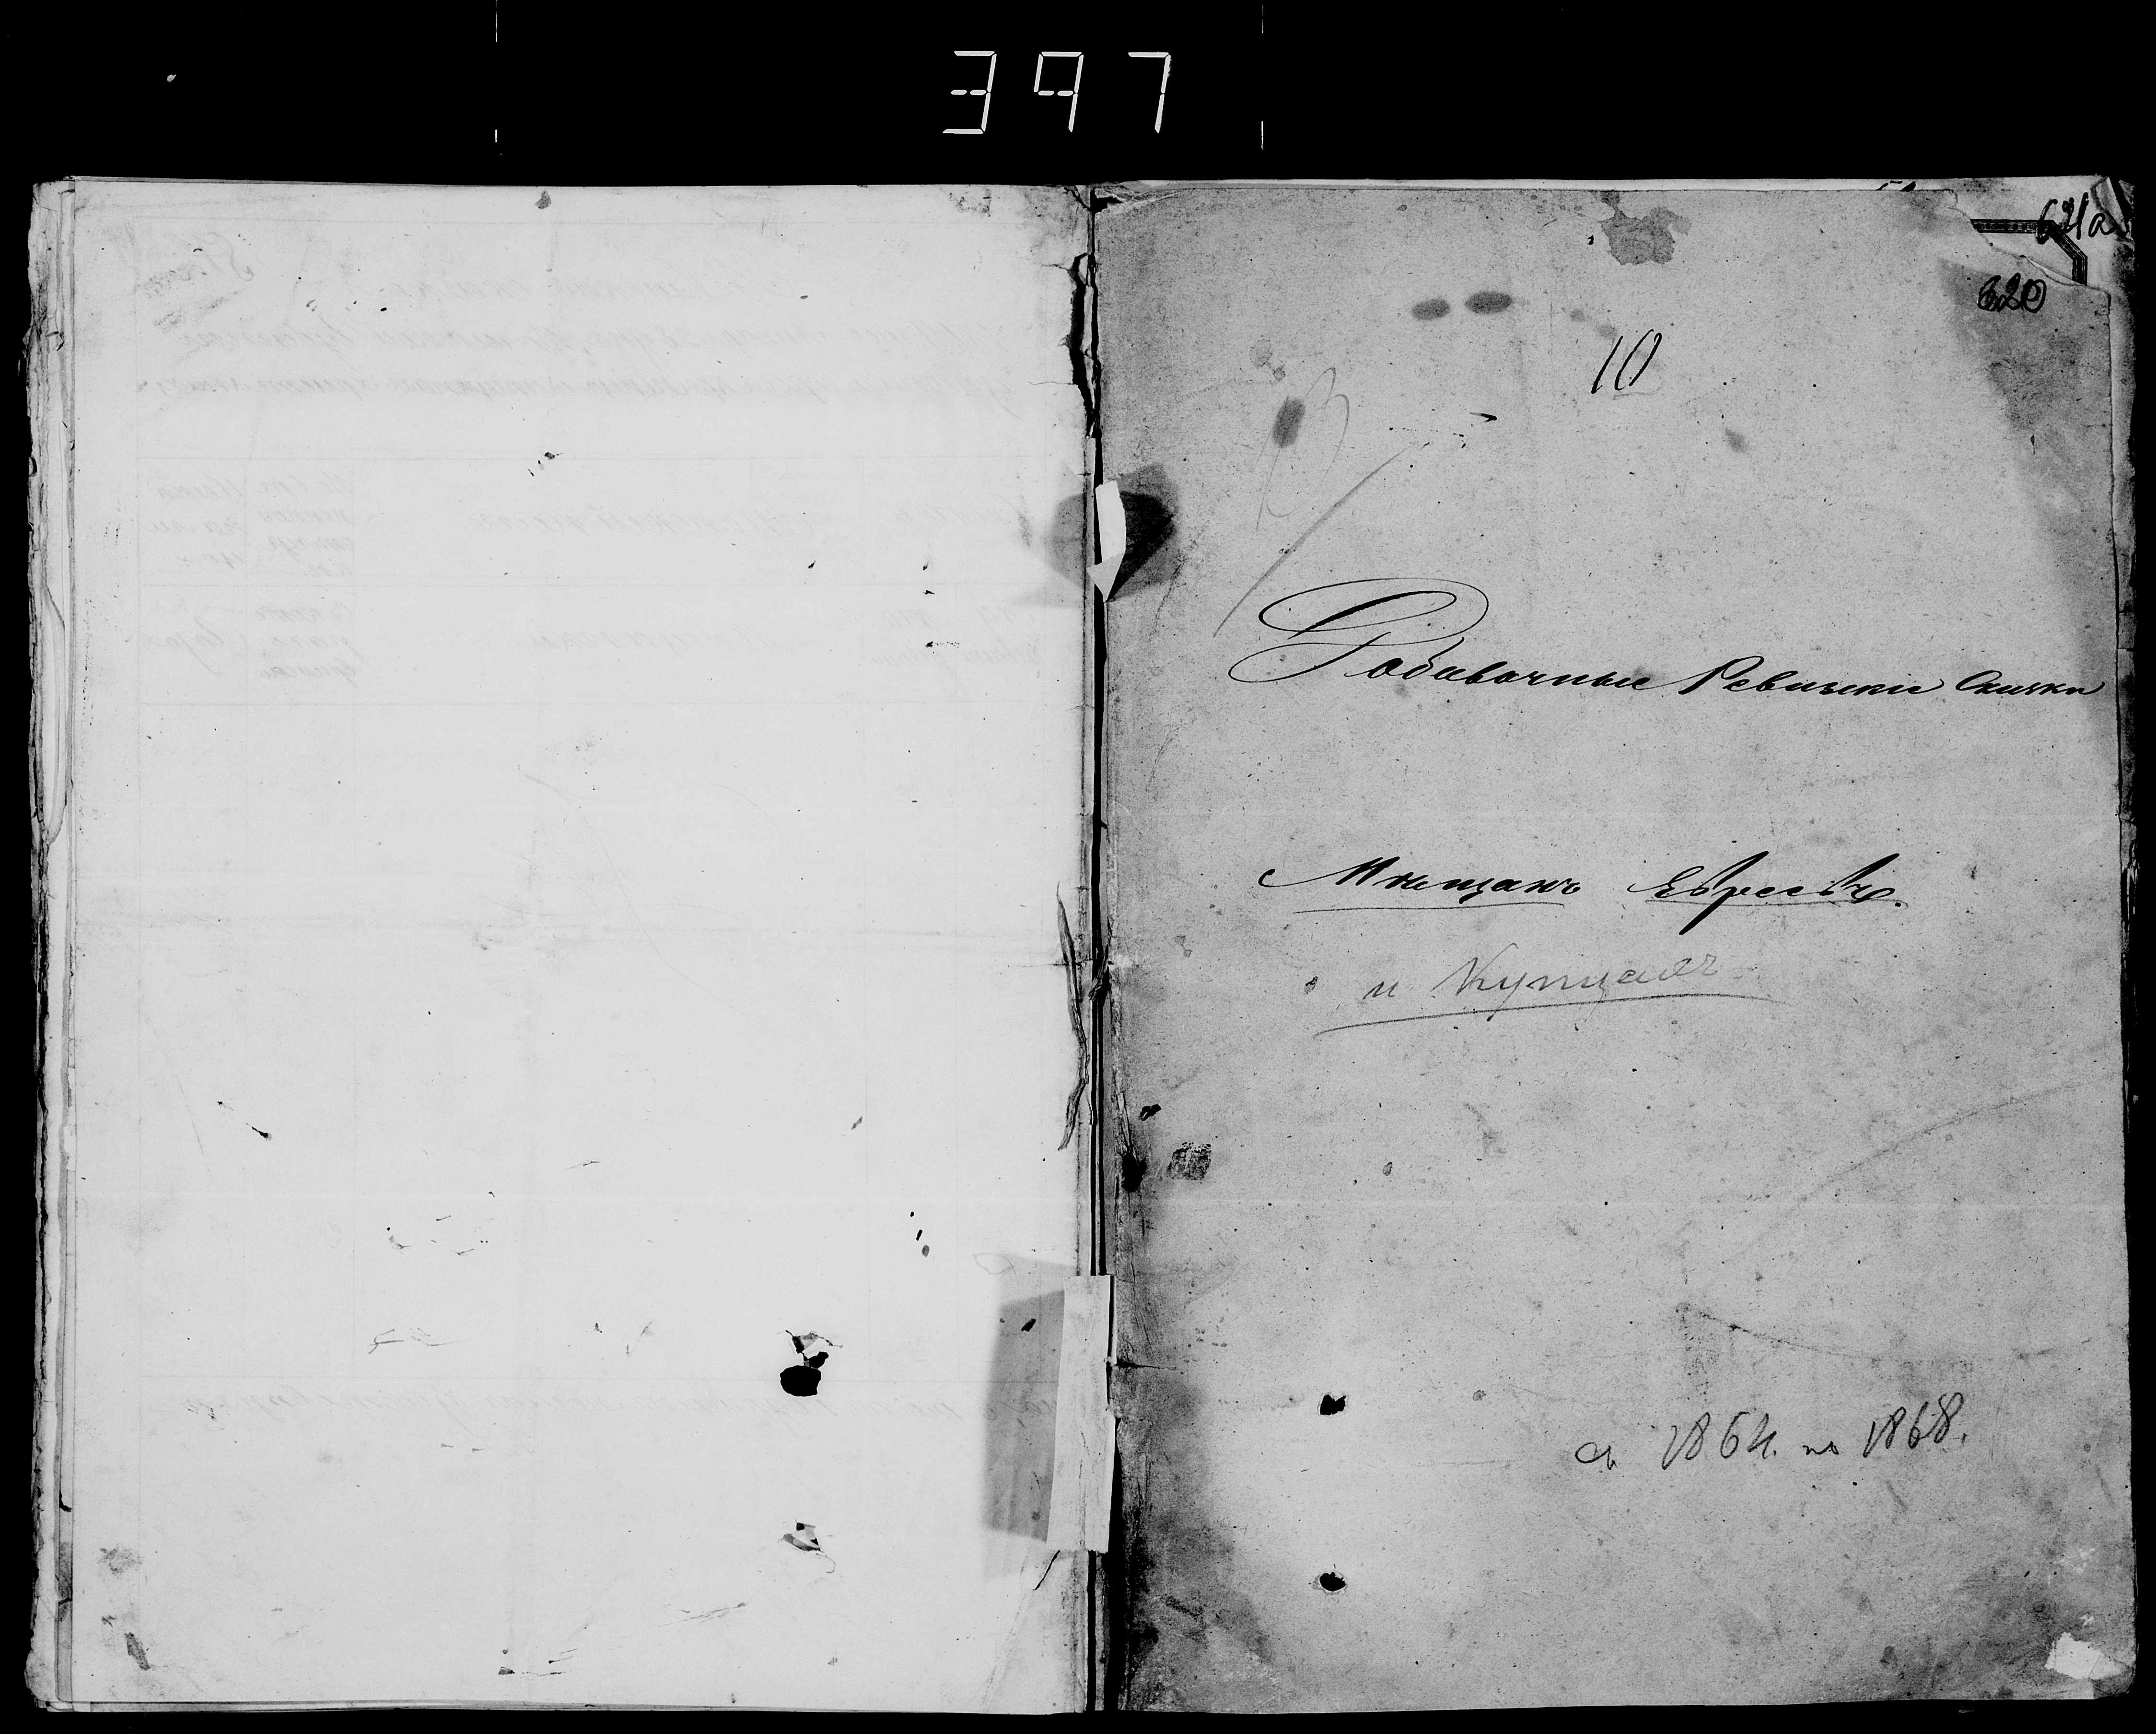 397
621а
620
10
Добавочные Ревизкие Сказки
Мѣщанъ Евреевъ.
и Купцовъ
съ 1864. по 1868.